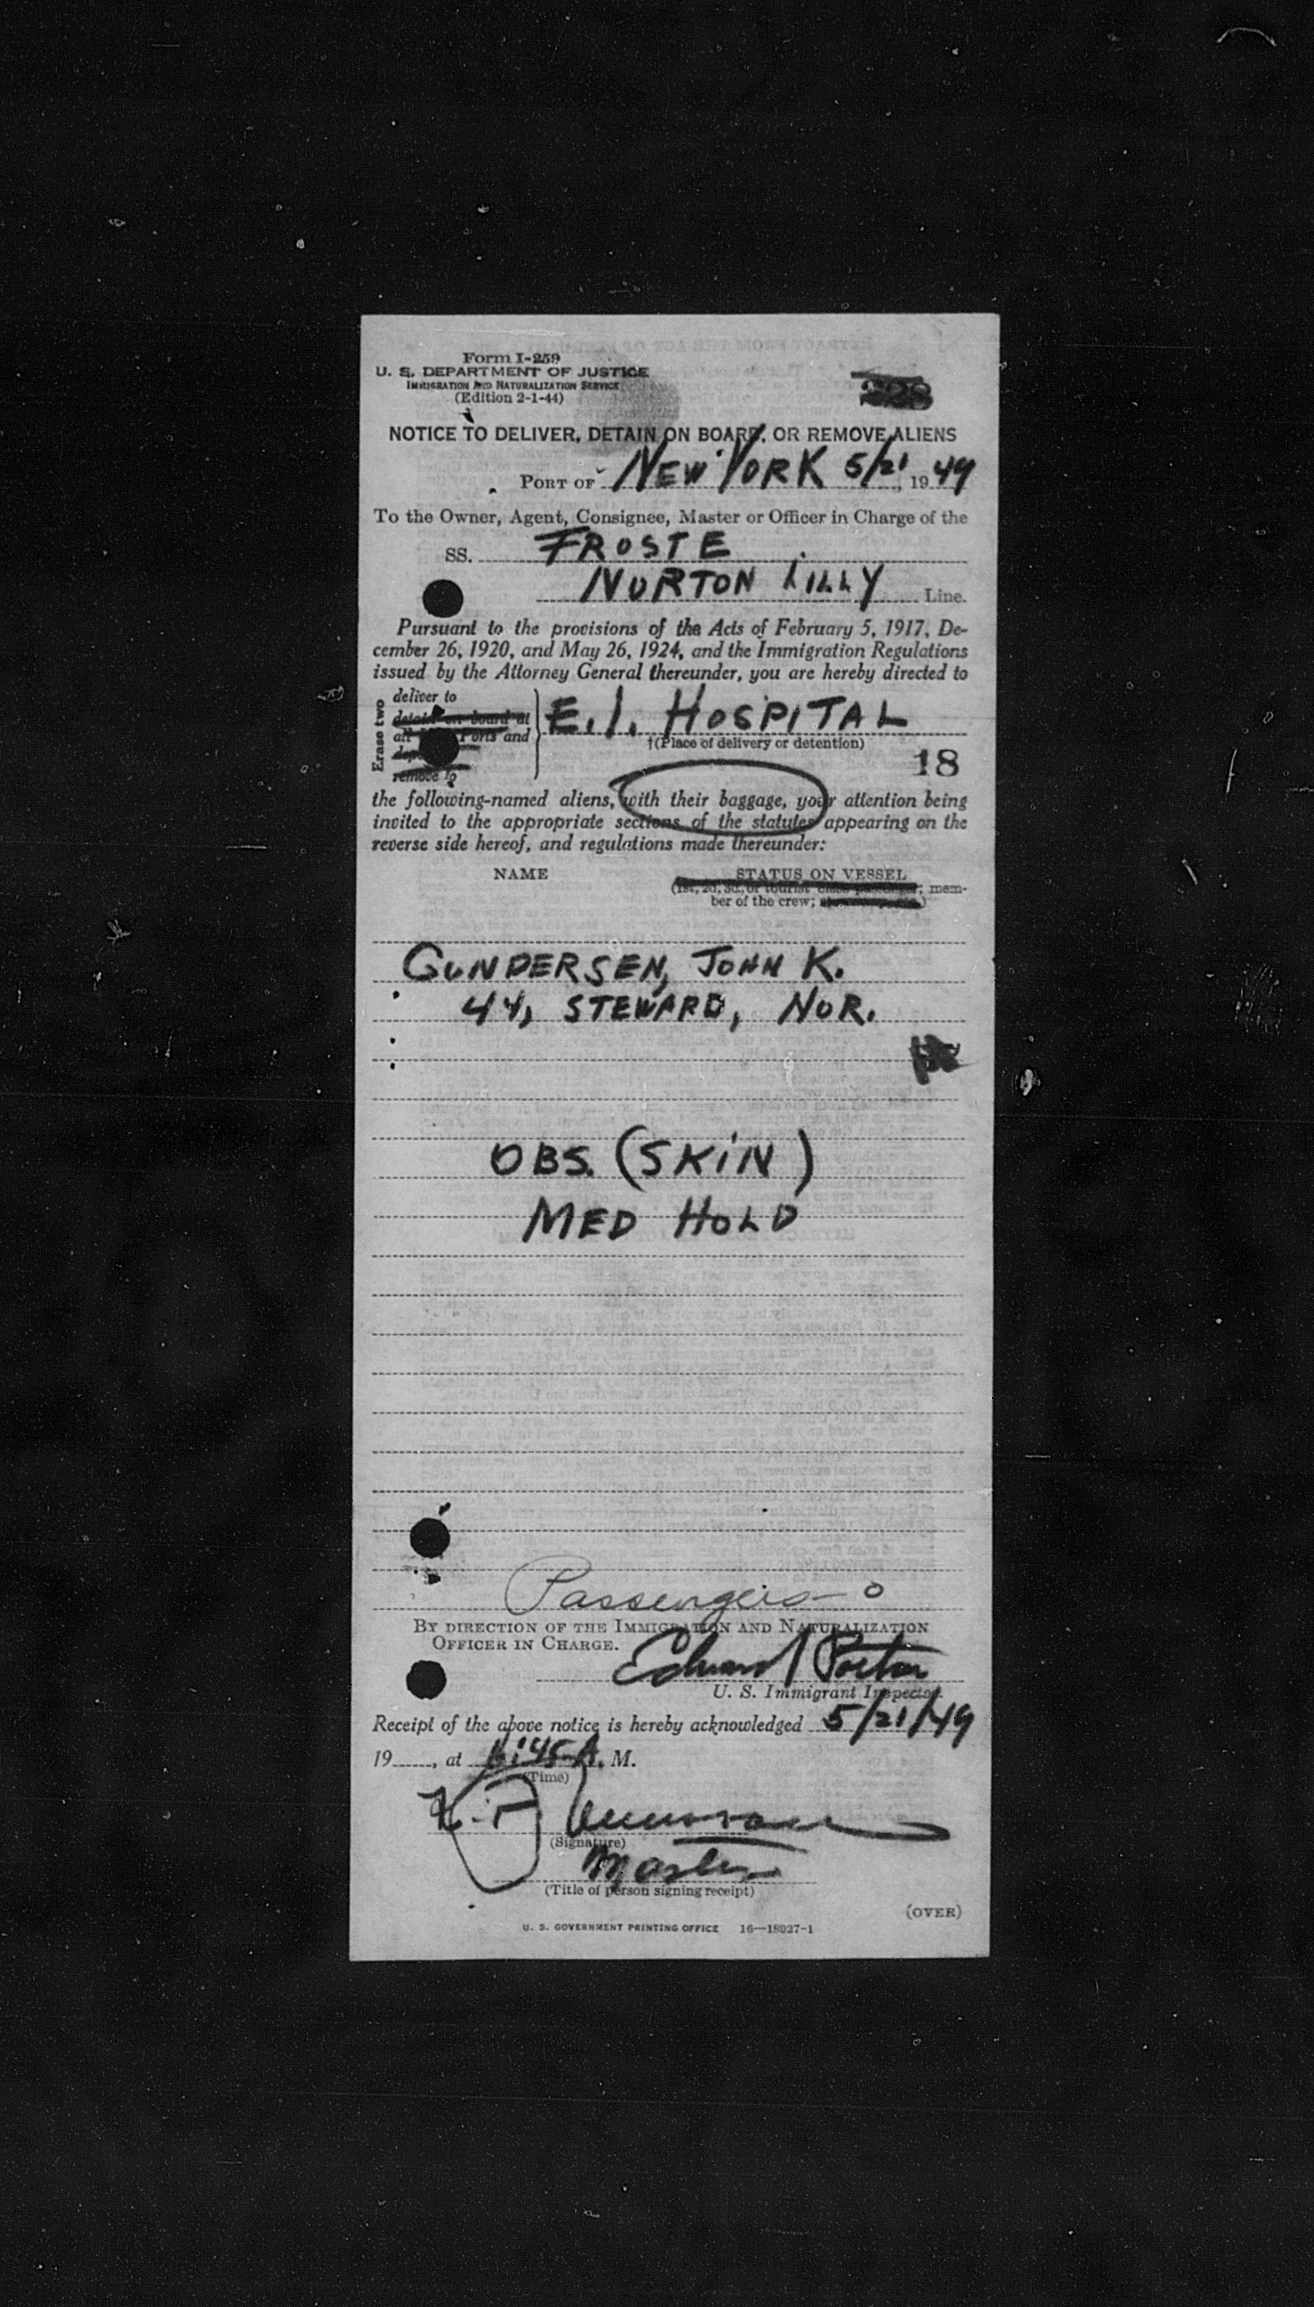 Form I-259
U. S. DEPARTMENT OF JUSTICE
IMMIGRATION AND NATURALIZATION SERVICE
(Edition 2-1-44)
NOTICE TO DELIVER, DETAIN ON BOARD, OR REMOVE ALIENS
PORT OF NEW YORK 5/21, 1949
To the Owner, Agent, Consignee, Master or Officer in Charge of the
SS. FROSTE
NORTON LILLY Line.
Pursuant to the provisions of the Acts of February 5, 1917, De-
cember 26, 1920, and May 26, 1924, and the Immigration Regulations
issued by the Attorney General thereunder, you are hereby directed to
Erase two
deliver to
detain on board at
all Ports and
remove to
E.I. HOSPITAL
†(Place of delivery or detention)
18
the following-named aliens, with their baggage, your attention being
invited to the appropriate sections of the statutes appearing on the
reverse side hereof, and regulations made thereunder:
NAME STATUS ON VESSEL
(1st, 2d, 3d, or tourist class passenger; mem-
ber of the crew; )
GUNDERSEN, JOHN K.
44, STEWARD, NOR.
OBS. (SKIN)
MED HOLD
Passengers - 0
BY DIRECTION OF THE IMMIGRATION AND NATURALIZATION
OFFICER IN CHARGE.
Edward Porter
U. S. Immigrant Inspector.
Receipt of the above notice is hereby acknowledged 5/21/49
19, at :45 A. M.
(Time)
(Signature)
Master
(Title of person signing receipt)
(OVER)
U. S. GOVERNMENT PRINTING OFFICE 16—18027-1